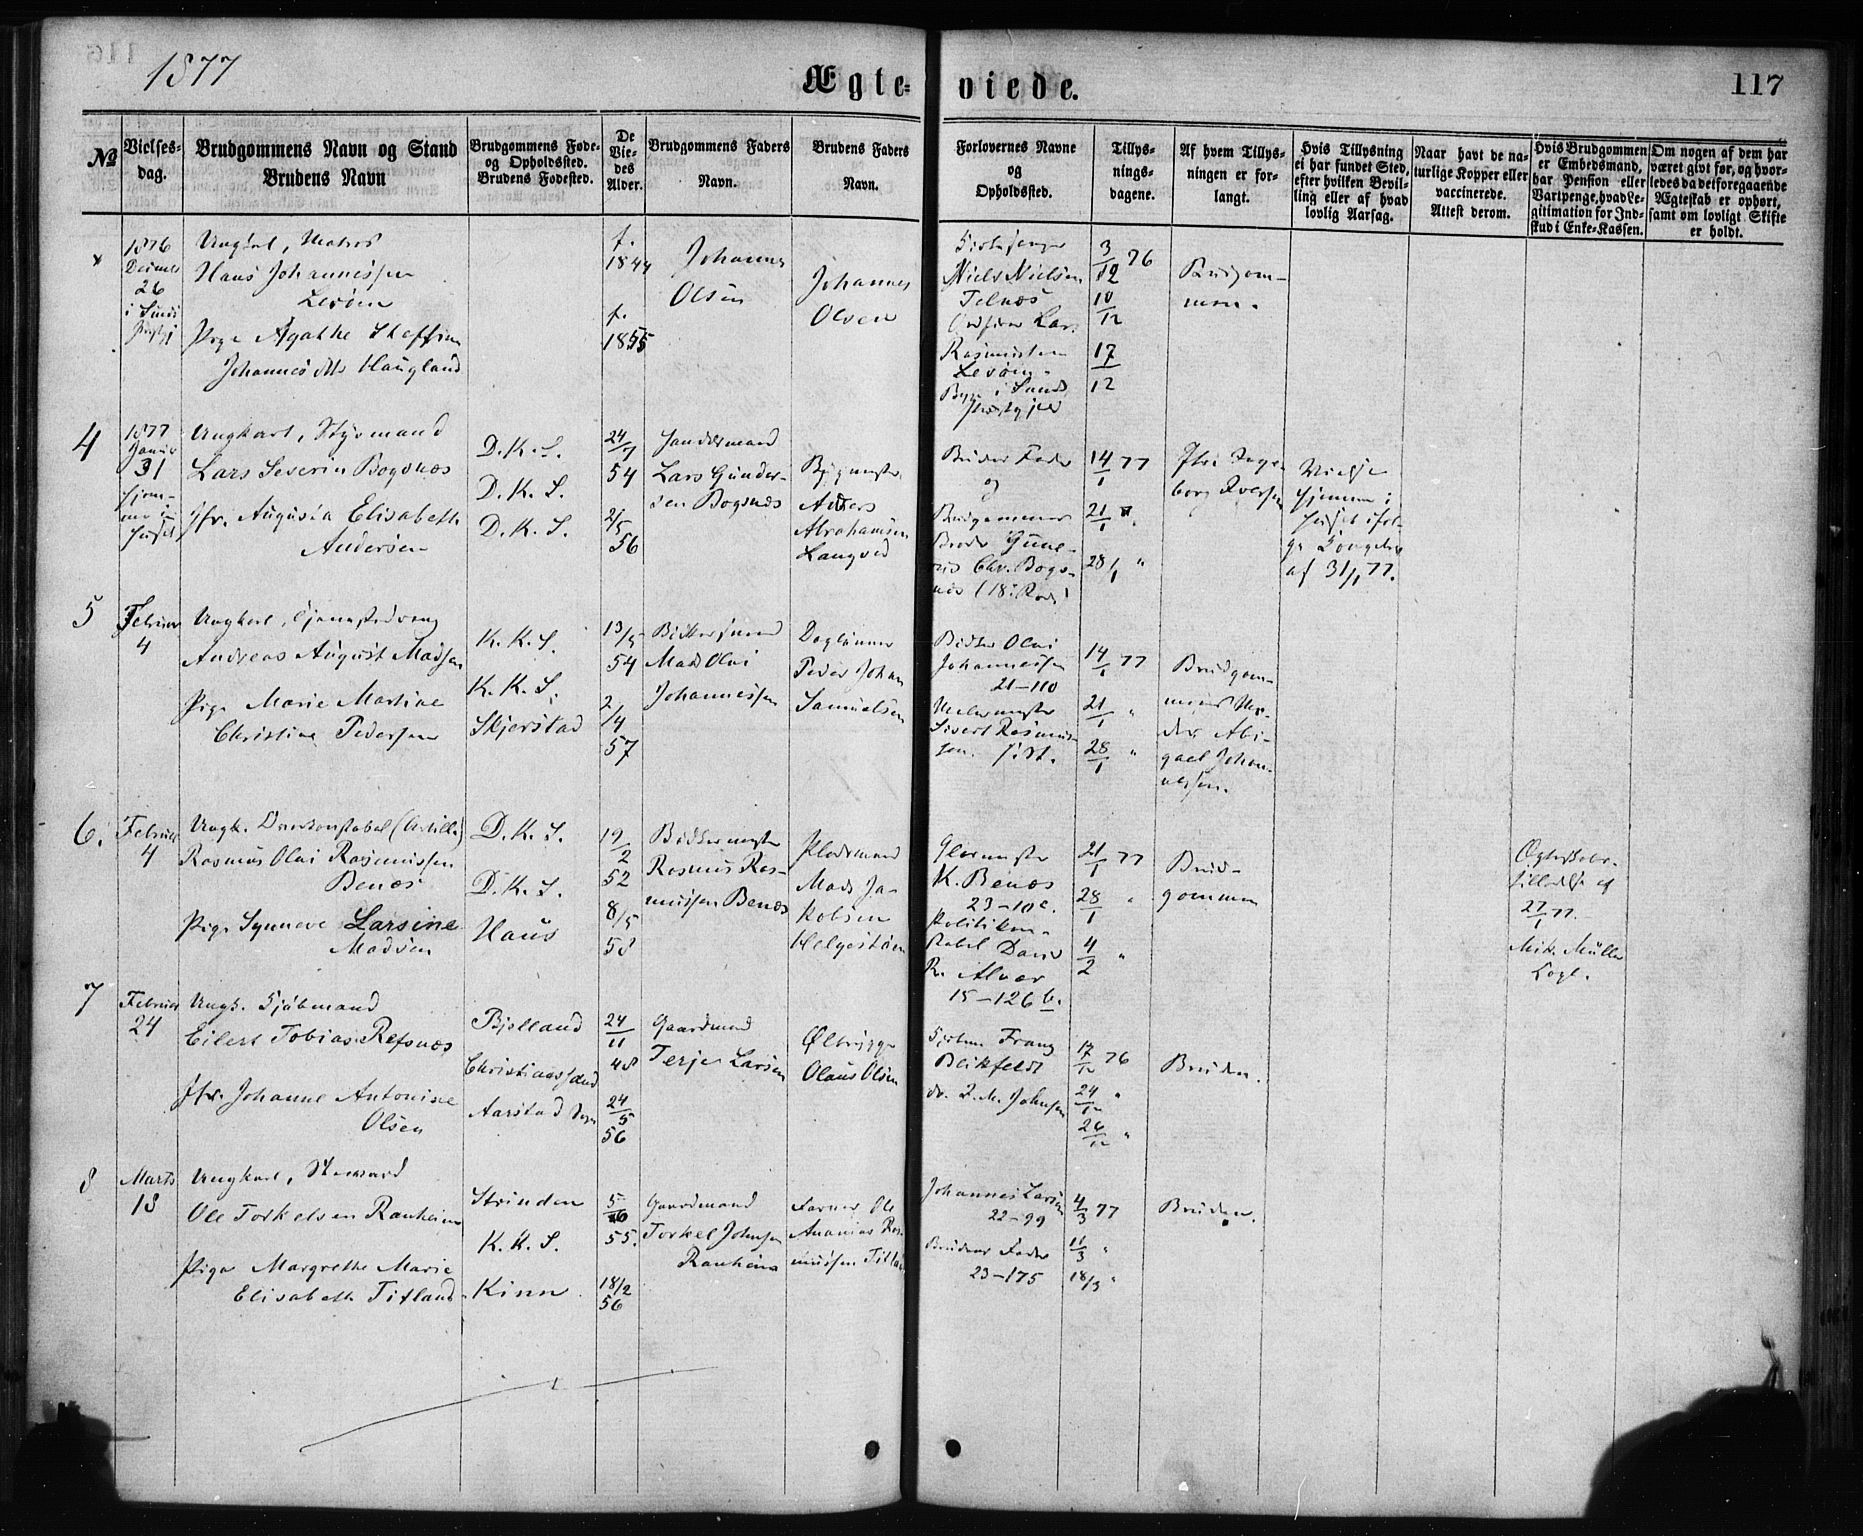 1877
Ægte-
viede.
117
№
Vielses-
dag.
Brudgommens Navn og Stand
Brudens Navn
Brudgommens Føde-
og Opholdssted.
Brudens Fødested.
De
Vie-
des
Alder.
Brudgommens Faders
Navn.
Brudens Faders
Navn.
Forlovernes Navne
og
Opholdssted.
Tillys-
nings-
dagene.
Af hvem Tillys-
ningen er for-
langt.
Hvis Tillysning
ei har fundet Sted,
efter hvilken Bevil-
ling eller af hvad
lovlig Aarsag.
Naar havt de na-
turlige Kopper eller
vaccinerede.
Attest derom.
Hvis Brudgommen
er Embedsmand,
har Pension eller
Vartpenge, hvad Le-
gitimation for Ind-
skud i Enke-Kassen.
Om nogen af dem har
været givt før, og hvor-
ledes da det foregaaende
Ægteskab er ophørt,
samt om lovligt Skifte
er holdt.
1876
26
Ungkarl, Matros
Hans Johannessen
Lerøen
Pige Agathe Steffine
Johannesdtr Haugland
f.
1844
f.
1855
Johannes
Olsen
Johannes
Olsen
Kirkesanger
Niels Nielsen
Telnæs
Rasmussen
Lerøen
3/12 76
10/12
17/12
Brudgom-
men.
4
1877
Januar
31
Hjem-
me i
Huset
Ungkarl, Styrmand
Lars Severin Bogsnæs
Jfr. Augusta Elisabeth
Andersen
D. K. S.
D. K. S.
D. K. S.
24/7
54
2/5
56
Lars Gunder-
sen Bogsnæs
Anders
Abrahamsen
Langved
Brudens Fader
og
Brudgommens
Broder
Chr. Bogs-
næs
14/1 77
21/1 "
28/1 "
Inge-
borg Iversen
Vielse
hjemme i
Huset iføl-
ge Kongebrev
af 31/1 77.
5
Februar
4
Ungkarl,
Andreas August Madsen
Pige Marie Martine
Christine Pedersen
K. K. S.
K. K. S.
Skjerstad
13/5
54
2/4
57
Mads Olai
Johannessen
Dagleier
Peder Johan
Samuelsen
Bødker Olai
Johannessen
21-110
Sivert Rasmus-
sen
14/1 77
21/1 "
28/1 "
Brudgom-
mens Mo-
der Abi-
gael Johan-
nessen.
6.
Februar
4
Ungk.
Rasmus Olai Rasmussen
Benæs
Pige Synneve Larsine
Madsen
D. K. S.
D. K. S.
Haus
19/2
52
8/5
58
Bødkermester
Rasmus Ras-
mussen Benæs
Pladsmand
Mads Ja-
kobsen
Helgestøen
Glarmester
K. Benæs
23-10c.
Politikon-
stabel
R. Alver
15-126 b.
21/1 77
28/1 "
4/2 "
Brud-
gommen
Ægteskabs-
tilladelse af
27/1 77.
Müller
7
Februar
24
Ungk. Sjømand
Eilert Tobias Refsnæs
Jfr. Johanne Antonine
Olsen
Bjelland
Christianssand
Aarstad Sogn
24/11
48
24/5
56
Gaardmand
Terje Larsen
Ølbrygger
Olaus Olsen
Franz
Blikfeldt
Johnsen
17/12 76
24/12 "
26/12 "
Bruden.
8
Marts
18
Ungkarl, Steward
Ole Torkelsen Ranheim
Pige Margrethe Marie
Elisabeth Titland
Strinden
K. K. S.
Kinn
55.
18/2
56
Gaardmand
Torkel Johnsen
Ranheim
Farver Ole
Ananias Ras-
mussen Titland
Johannes Larsen
22-99
Brudens Fader
23-175
4/3 77
11/3 "
18/3 "
Bruden.